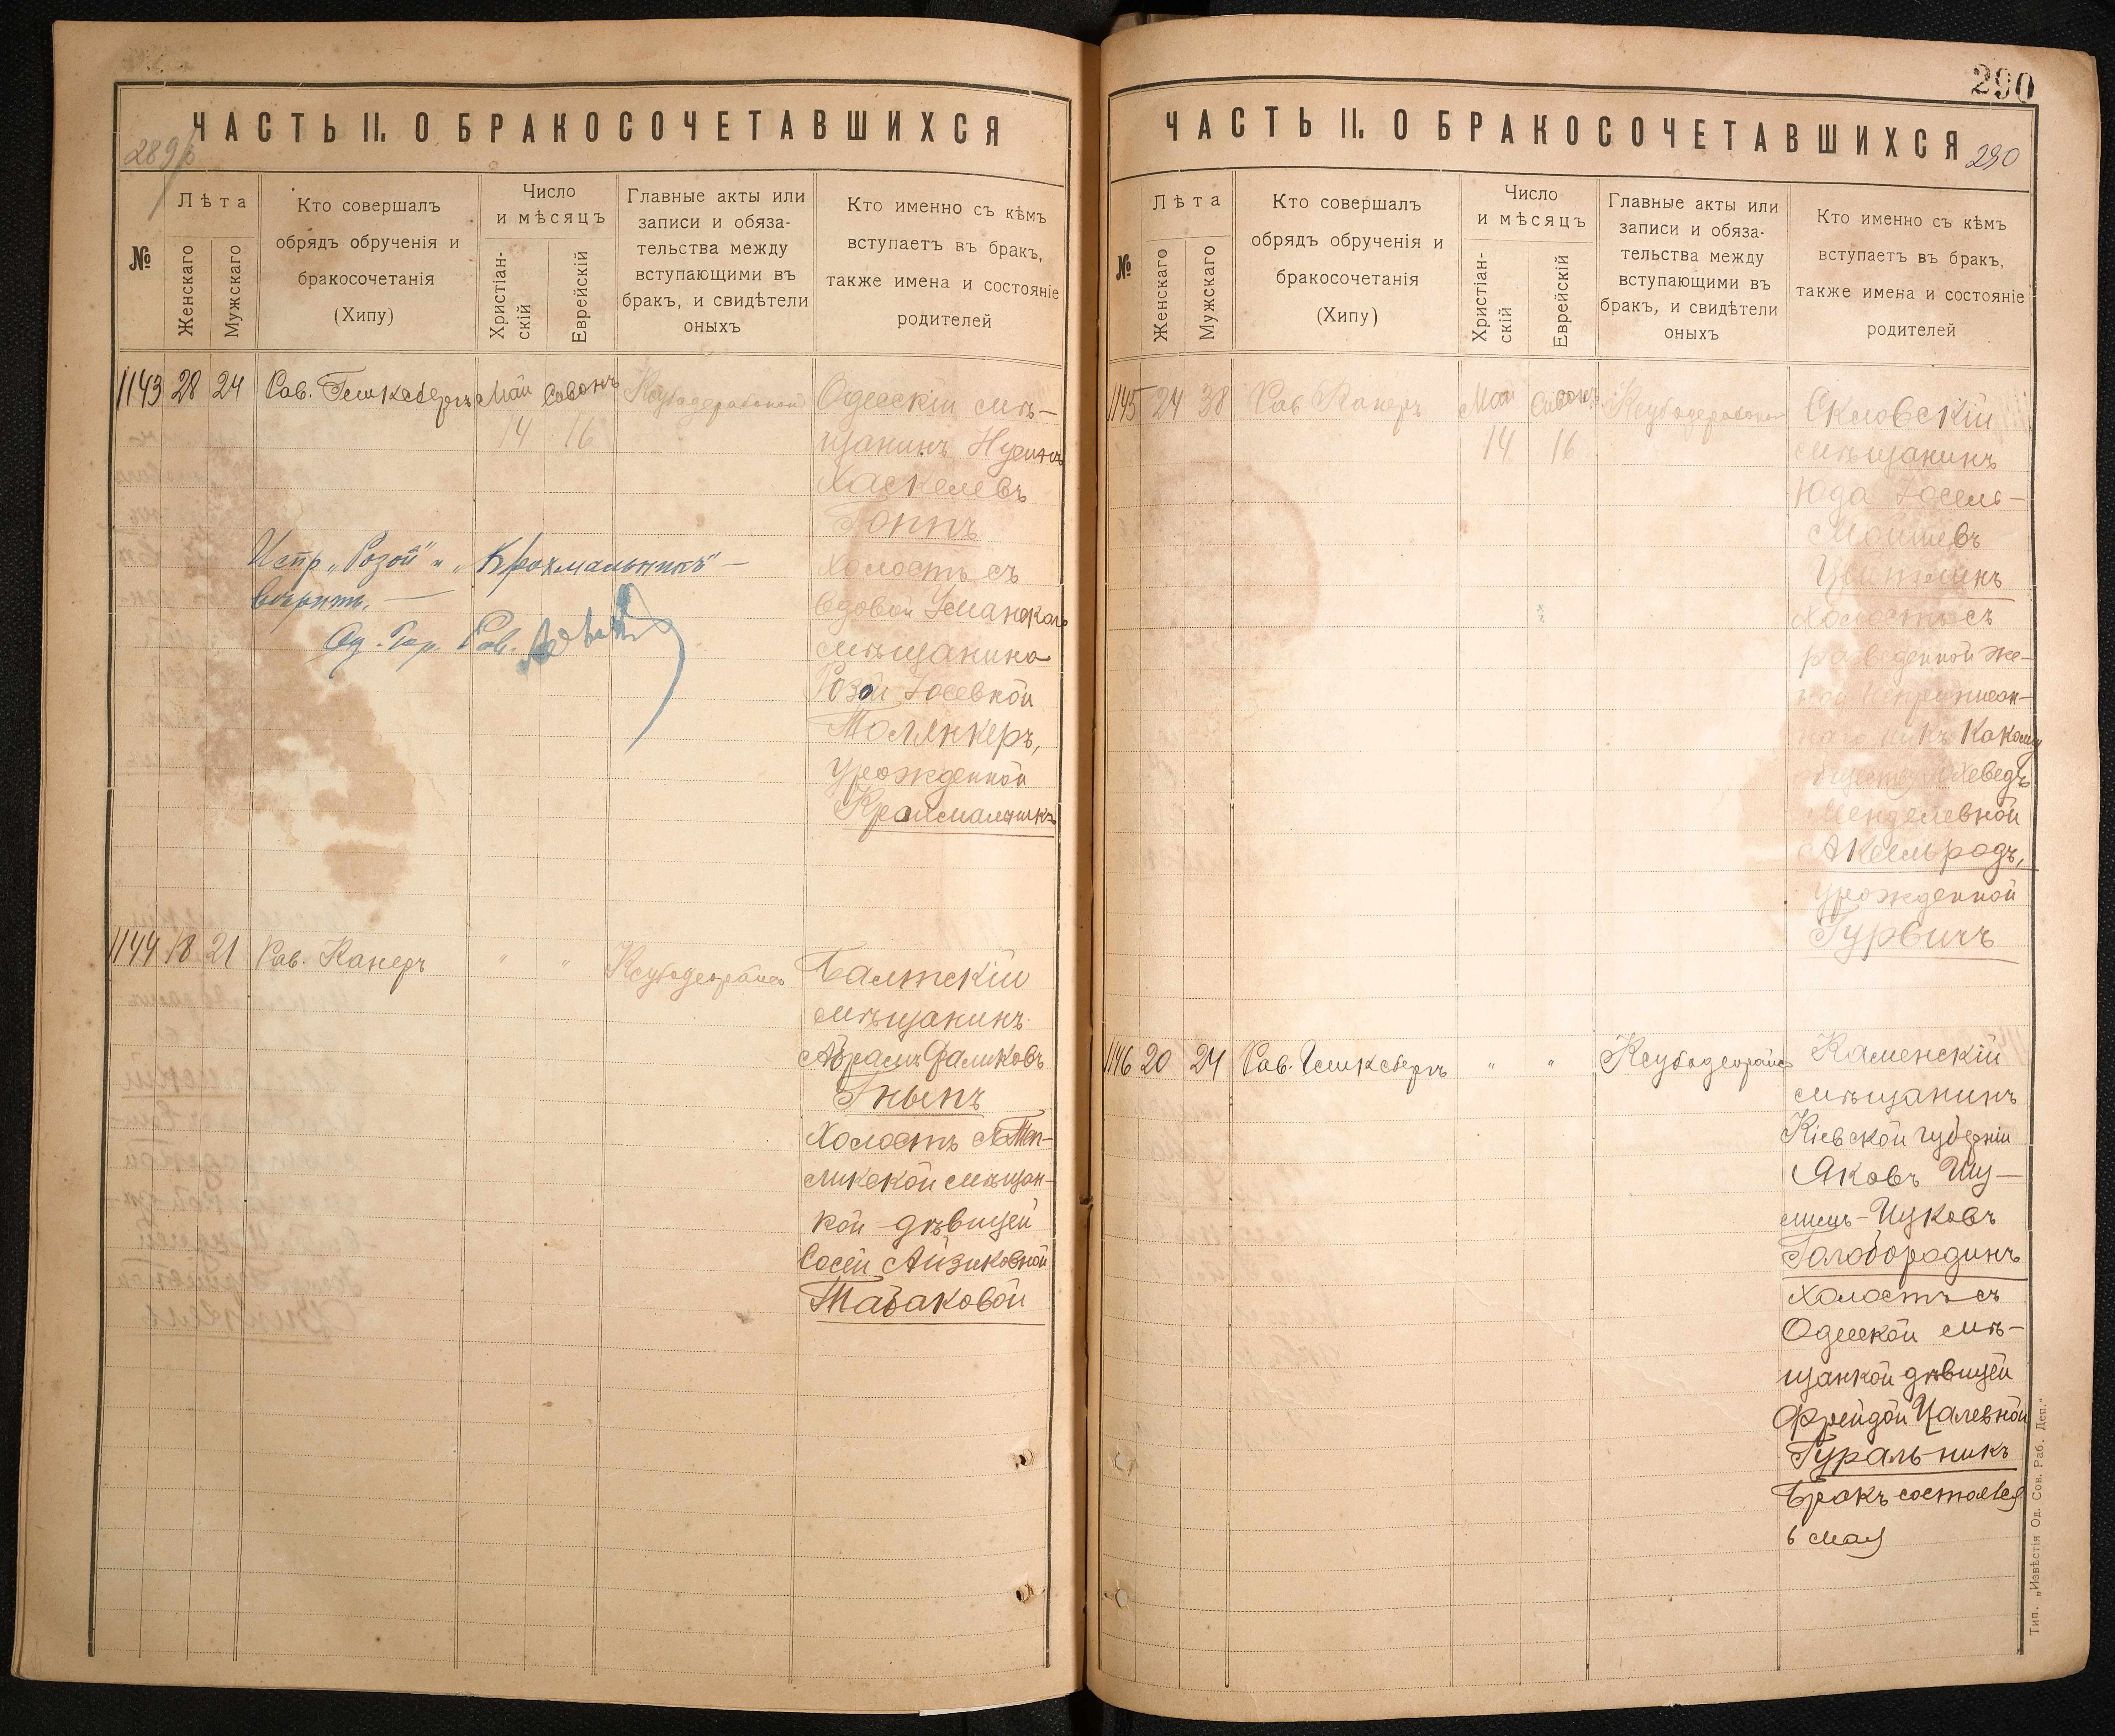 ЧАСТЬ II. О БРАКОСОЧЕТАВШИХСЯ
№
Лѣта
Женскаго
Мужскаго
Кто совершалъ
обрядъ обрученія и
бракосочетанія
(Хипу)
Число
и мѣсяцъ
Христіан-
скій
Еврейскій
Главные акты или
записи и обяза-
тельства между
вступающими въ
бракъ, и свидѣтели
оныхъ
Кто именно съ кѣмъ
вступаетъ въ бракъ,
также имена и состояніе
родителей
1143 28 24 Рав. Май Сивонъ
14 16
Одесскій мѣ-
щанинъ
Хаскелевъ
Гоппъ
холостъ съ
вдовой Уманскаго
мѣщанина
Розой Іосевной
Толянкеръ,
урожденной
Крахмальникъ
Испр. „Розой" и „Крахмальникъ" —
вѣрить. —
Од. Гор. Рав.
1144 18 21 Рав. Канеръ " "
Балтскій
мѣщанинъ
Абрамъ Фаликовъ
Гныпъ
Холостъ съ Теп-
ликской мѣщан-
кой дѣвицей
Сосей Айзиковной
Табаковой
290
ЧАСТЬ II. О БРАКОСОЧЕТАВШИХСЯ
290
№
Лѣта
Женскаго
Мужскаго
Кто совершалъ
обрядъ обрученія и
бракосочетанія
(Хипу)
Число
и мѣсяцъ
Христіан-
скій
Еврейскій
Главные акты или
записи и обяза-
тельства между
вступающими въ
бракъ, и свидѣтели
оныхъ
Кто именно съ кѣмъ
вступаетъ въ бракъ,
также имена и состояніе
родителей
1145 24 38 Рав Канеръ Май Сивонъ
14 16
мѣщанинъ
Юда Іосель-
Мошевъ
Цвитманъ
холостъ съ
разведенной же-
ной Неприписан-
наго ни къ какому
обществу Юхеведъ
Менделевной
Аксельродъ,
урожденной
Гурвичъ
1146 20 24 Рав. " "
Каменскій
мѣщанинъ
Кіевской губерніи
Яковъ Шу-
Ицковъ
Голобородинъ
холостъ съ
Одесской мѣ-
щанкой дѣвицей
Фрейдой Цалевной
Гуральникъ
Бракъ состоялся
6 мая
Тип. „Извѣстія Од. Сов. Раб. Деп."